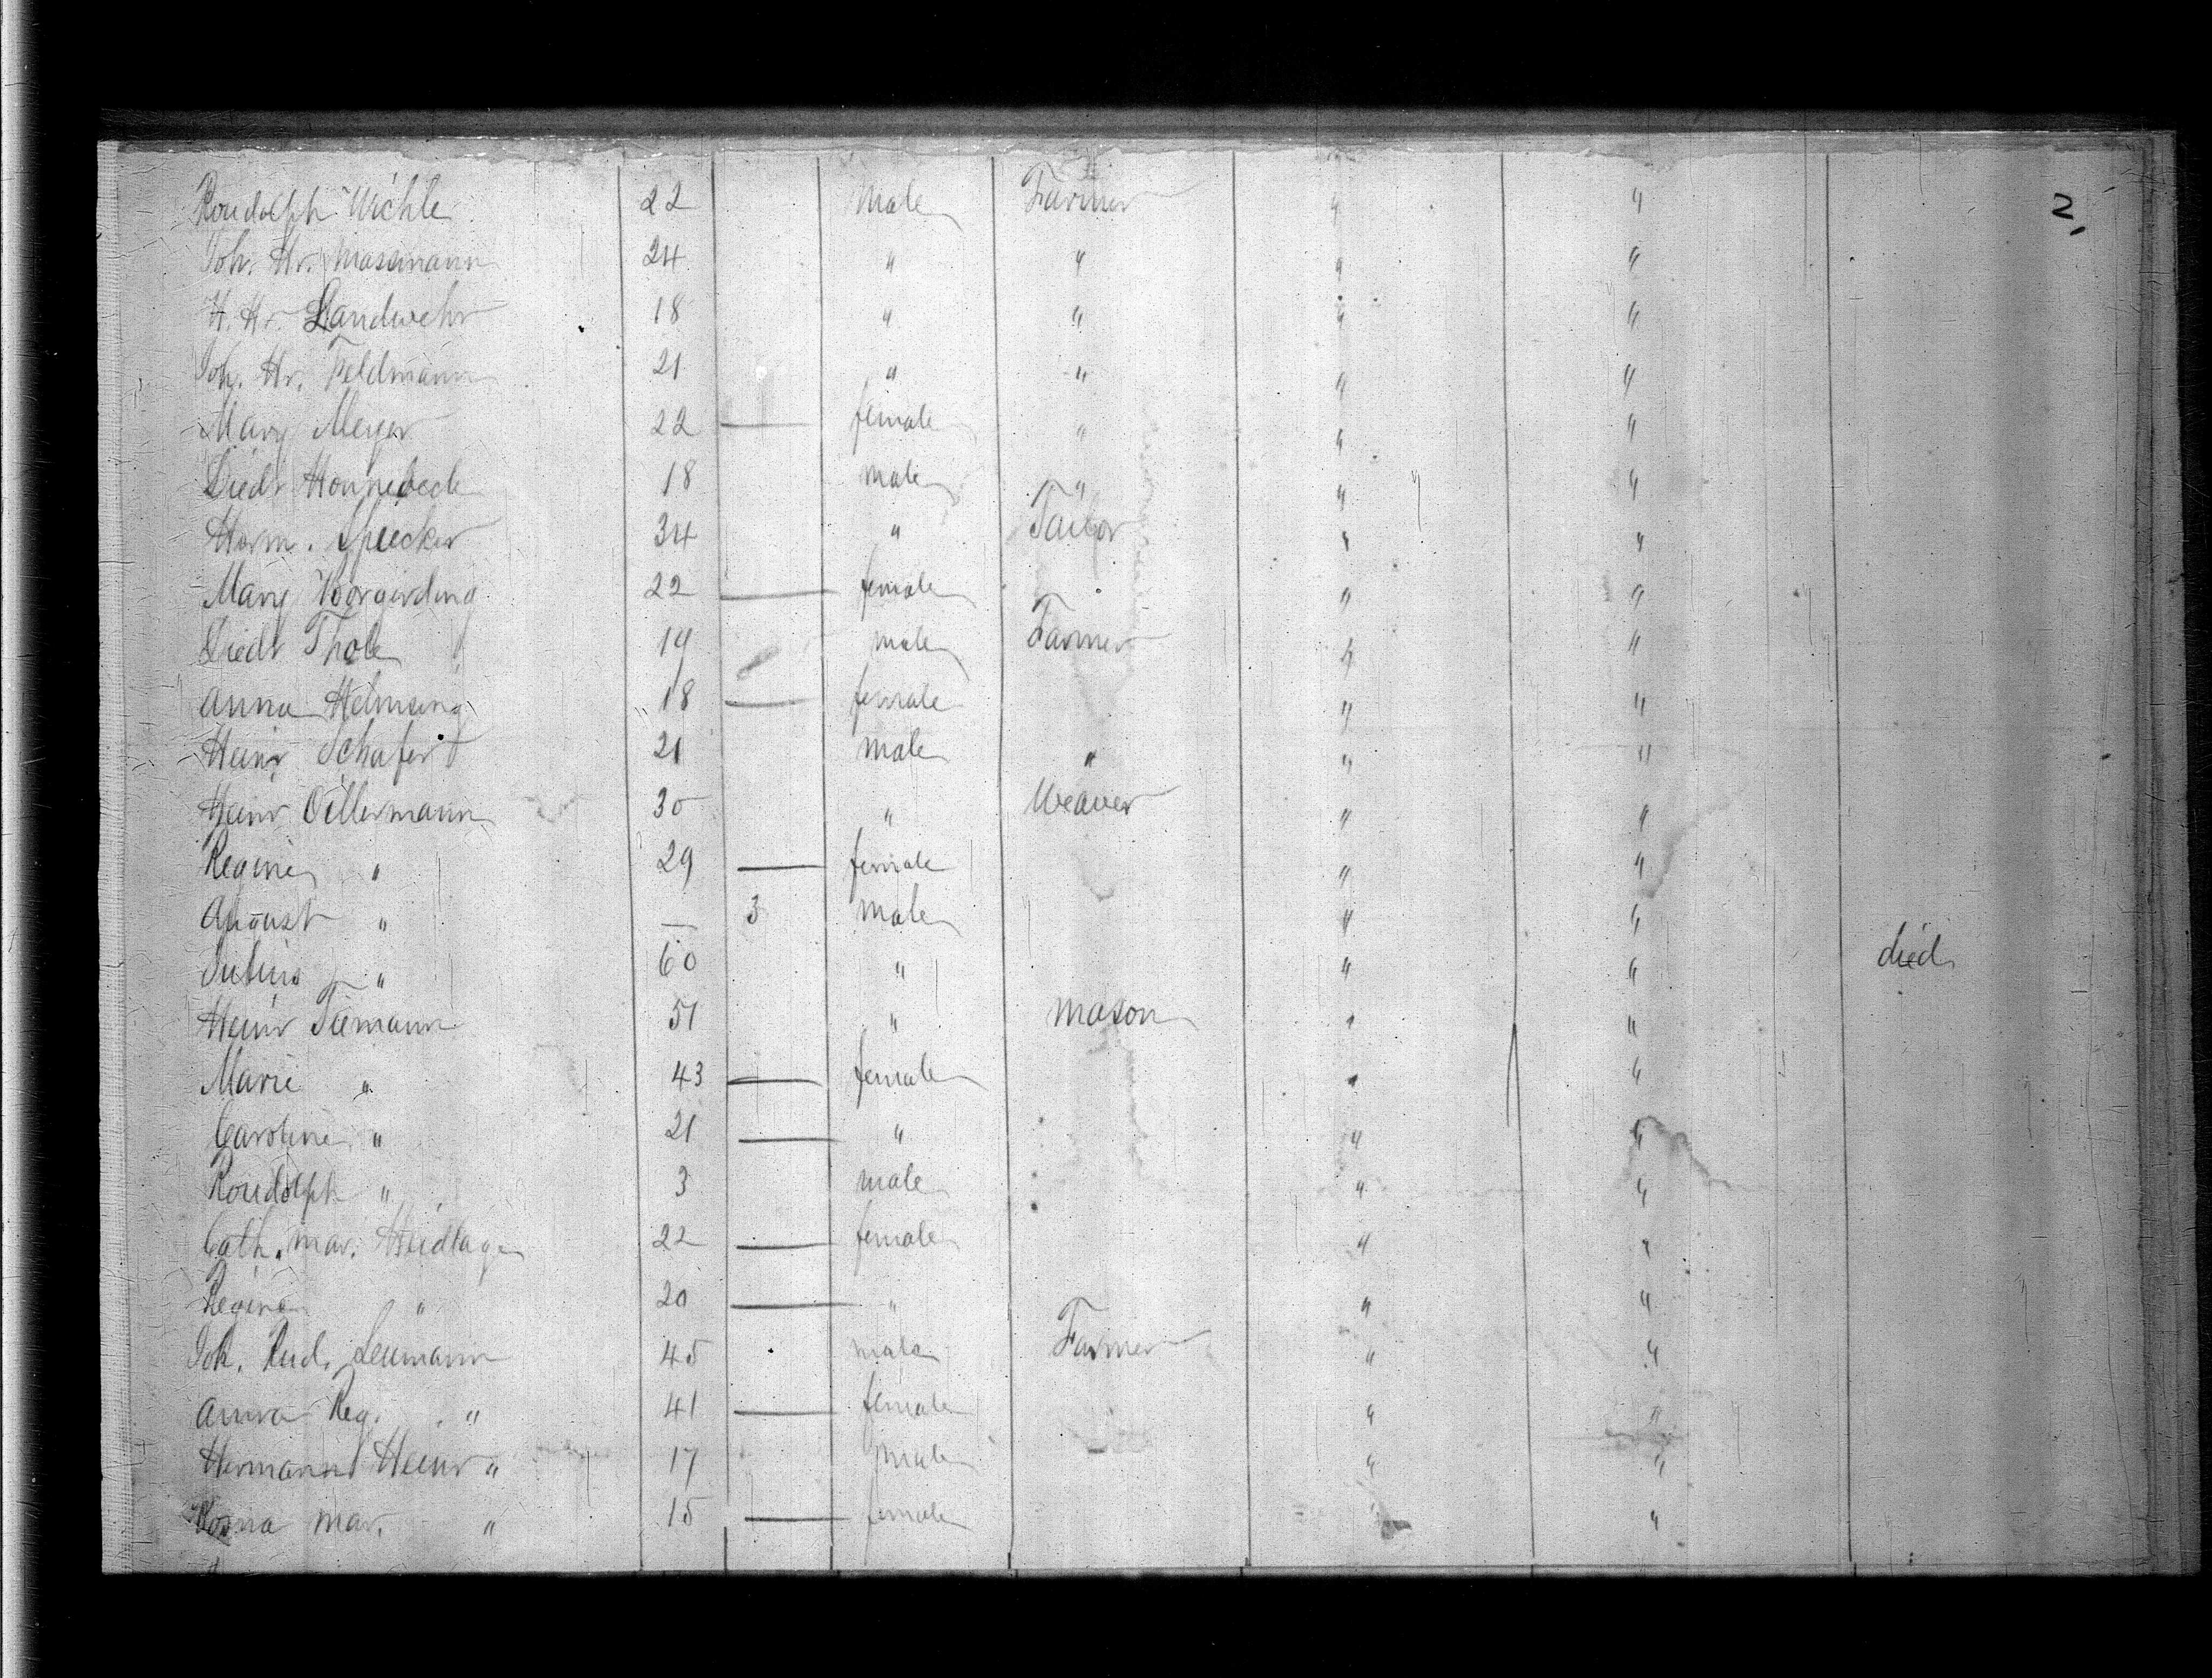 2
Roudolph Wichle 22 Male Farmer " "
Joh. Hr. Massmann 24 " " " "
H. Hr. Landwehr 18 " " " "
Joh. Hr. Feldmann 21 " " " "
Mary Meyer 22 — female " " "
Diedr Honnebeck 18 male " " "
Herm. Specker 34 " Tailor " "
Mary Borgerding 22 — female " "
Diedr Thole 19 male Farmer " "
Anna Helmsing 18 — female " "
Heinr Schafer 21 male " " "
Heinr Oellermann 30 " Weaver " "
Regine " 29 — female " "
August " — 3 male " "
Julius " 60 " " " died
Heinr Tiemann 51 " mason " "
Marie " 43 — female " "
Caroline " 21 — " " "
Roudolph " 3 male " "
Cath. mar. Heidlage 22 — female " "
Regina " 20 — " " "
Joh. Rud. Leumann 45 male Farmer " "
Anna Reg. " 41 — female " "
Hermann Heinr " 17 male " "
mar. " 15 — female "